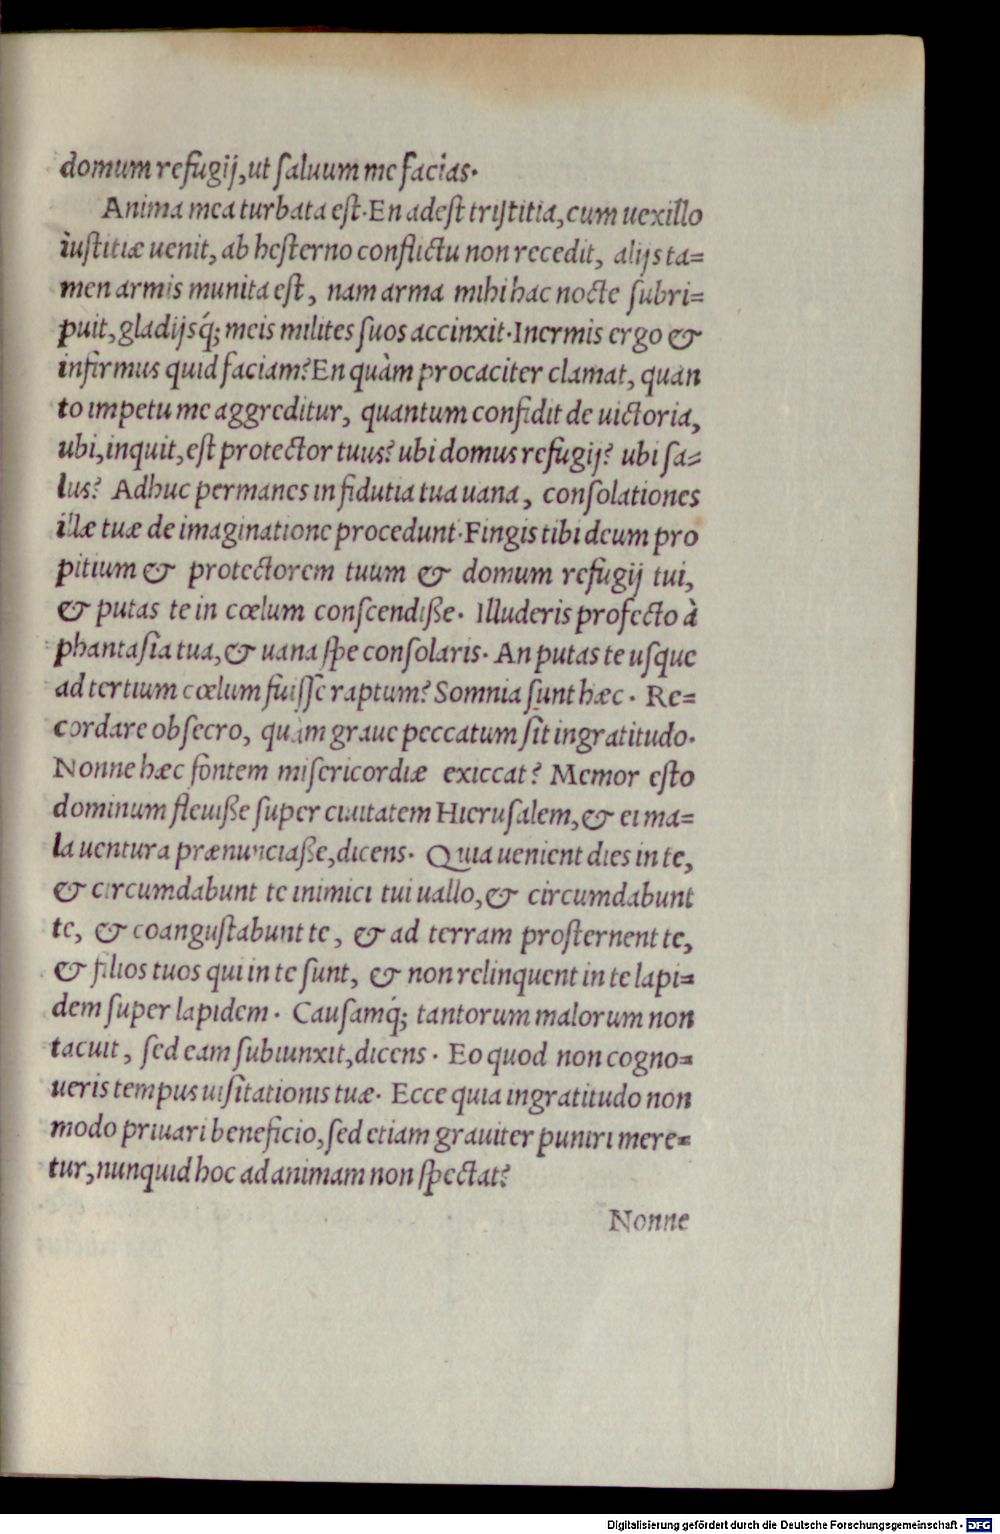 domum refugij, ut ſaluum me facias.
Anima mea turbata eſt. En adeſt triſtitia, cum uexillo
iuſtitiæ uenit, ab heſterno conflictu non recedit, alijs ta=
men armis munita eſt, nam arma mihi hac nocte ſubri=
puit, gladijsq́; meis milites ſuos accinxit. Inermis ergo &
infirmus quid faciam? En quàm procaciter clamat, quan
to impetu me aggreditur, quantum confidit de uictoria,
ubi, inquit, eſt protector tuus? ubi domus refugij? ubi ſa=
lus? Adhuc permanes in fidutia tua uana, conſolationes
illæ tuæ de imaginatione procedunt. Fingis tibi deum pro
pitium & protectorem tuum & domum refugij tui,
& putas te in cœlum conſcendiße. Illuderis profecto à
phantaſia tua, & uana ſpe conſolaris. An putas te uſque
ad tertium cœlum fuiſſe raptum? Somnia ſunt hæc. Re=
cordare obſecro, quàm graue peccatum ſit ingratitudo.
Nonne hæc fontem miſericordiæ exiccat? Memor eſto
dominum fleuiße ſuper ciuitatem Hieruſalem, & ei ma=
la uentura prænunciaße, dicens. Quia uenient dies in te,
& circumdabunt te inimici tui uallo, & circumdabunt
te, & coanguſtabunt te, & ad terram proſternent te,
& filios tuos qui in te ſunt, & non relinquent in te lapi=
dem ſuper lapidem. Cauſamq́; tantorum malorum non
tacuit, ſed eam ſubiunxit, dicens. Eo quod non cogno=
ueris tempus uiſitationis tuæ. Ecce quia ingratitudo non
modo priuari beneficio, ſed etiam grauiter puniri mere=
tur, nunquid hoc ad animam non ſpectat?
Nonne
Digitalisierung gefördert durch die Deutsche Forschungsgemeinschaft - DFG